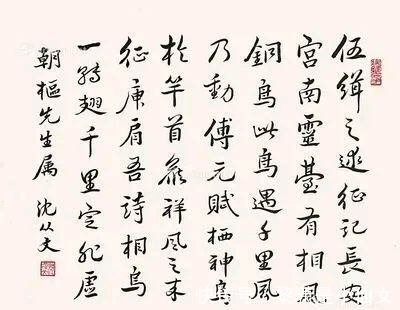 伍缉之述征记长安
宫南灵台有相风
铜乌此乌遇千里风
乃动傅元赋栖神乌
于竿首俟祥风之来
征庾肩吾诗相乌
一转翅千里定非虚
朝枢先生属 沈从文